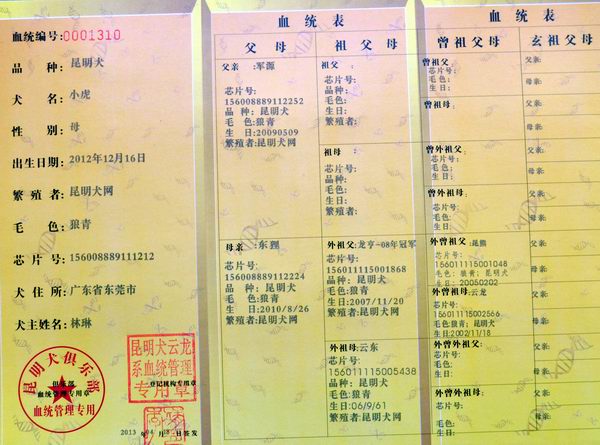 血统编号:0001310
品 种: 昆明犬
犬 名: 小虎
性 别: 母
出生日期: 2012年12月16日
繁 殖 者: 昆明犬网
毛 色: 狼青
芯 片 号: 156008889111212
犬 住 所: 广东省东莞市
犬主姓名: 林琳
昆明犬俱乐部
俱乐部
血统管理专用章
血统管理专用
昆明犬云龙
系血统管理
专用章
登记机构专用章
2013 年 04 月 日签发
血 统 表
父 母
父亲 :军源
芯片号:
156008889112252
品 种: 昆明犬
毛 色:狼青
生 日:20090509
繁殖者:昆明犬网
母亲 :东狸
芯片号:
156008889112224
品 种:昆明犬
毛 色:狼青
生 日:2010/8/26
繁殖者:昆明犬网
祖 父 母
祖父:
芯片号:
品种:
毛色:
生日:
繁殖者:
祖母:
芯片号:
品种:
毛色:
生日:
繁殖者:
外祖父:龙亨-08年冠军
芯片号:
156011115001868
品种:昆明犬
毛色:狼青
生日:2007/11/20
繁殖者:昆明犬网
外祖母:云东
芯片号:
156011115005438
品种: 昆明犬
毛色:狼青
生日:06/9/61
繁殖者:昆明犬网
血 统 表
曾 祖 父 母
曾祖父:
芯片号:
毛色:
生日:
曾祖母:
芯片号:
毛色:
生日:
曾外祖父:
芯片号:
毛色:
生日:
曾外祖母:
芯片号:
毛色:
生日:
外曾祖父:昆熊
芯片号:
156011115001048
毛色: 狼黄; 昆明犬
生日: 20050202
外曾祖母:云龙
芯片号:
156011115002566
毛色:狼青; 昆明犬
生日:2002/11/18
外曾外祖父:
芯片号:
毛色:
生日:
外曾外祖母:
芯片号:
毛色:
生日:
玄 祖 父 母
父亲:
母亲:
父亲:
母亲:
父亲:
母亲:
父亲:
母亲:
父亲:
母亲:
父亲:
母亲:
父亲:
母亲:
父亲:
母亲: